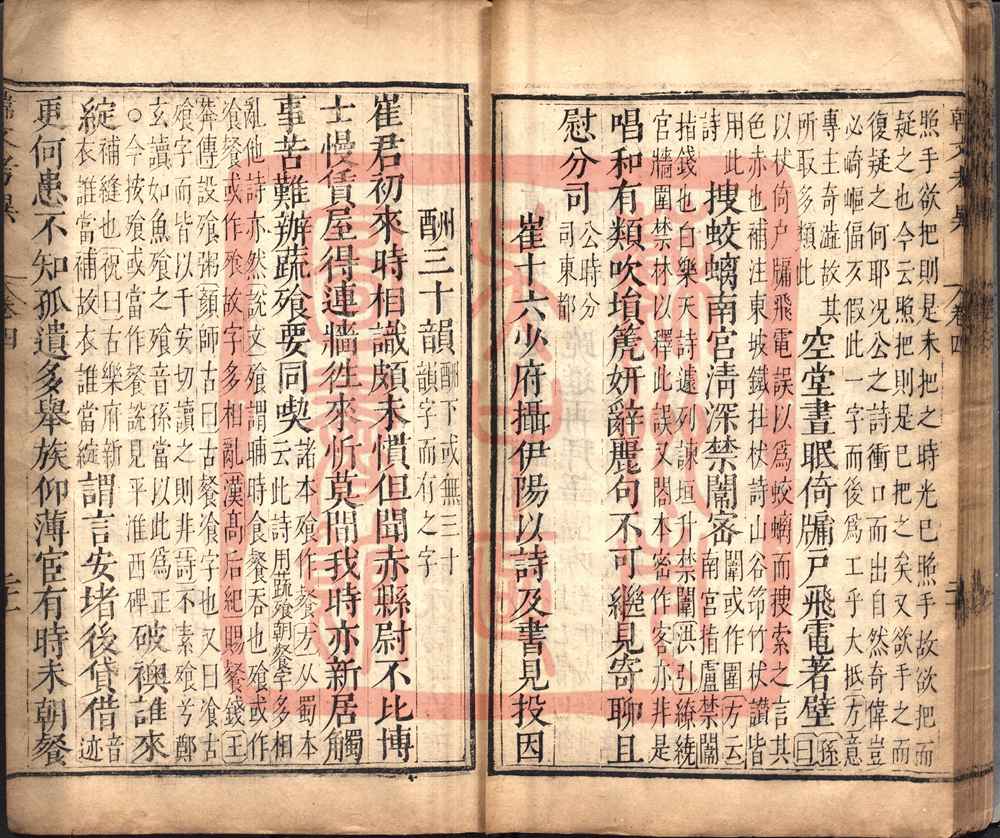 照手欲把則是未把之時光已照手故欲把而
疑之也今云照把則是已把之矣又欲手之而
復疑之何耶况公之詩衝口而出自然奇偉豈
必崎嶇偪仄假此一字而後爲工乎大抵方意
專主奇澁故其
所取多類此
空堂晝眠倚牖戶飛電著壁
孫曰
以伏倚戶牖飛電誤以爲蛟螭而搜索之言其
色赤也補注東坡鐵拄杖詩山谷筇竹杖讚皆
用此
詩
搜蛟螭南宮淸深禁闈密
闈或作圍方云
南宮指盧禁闈
指錢也白樂天詩遠列諫垣升禁闈洪引繚繞
官牆圍禁林以釋此誤又閣本密作客亦非是
唱和有類吹塤篪妍辭麗句不可繼見寄聊且
慰分司
公時分
司東都
崔十六少府攝伊陽以詩及書見投因
酬三十韻
酬下或無三十
韻字而有之字
崔君初來時相識頗未慣但聞赤縣尉不比博
士慢賃屋得連牆徃來忻莫間我時亦新居觸
事苦難辦蔬飱要同喫
諸本飱作餐方从蜀本
云此詩用蔬飱朝餐字多相
亂他詩亦然說文飱謂餔時食餐吞也飱或作
飡餐或作飱故字多相亂漢高后紀賜餐錢王
莽傳設飱粥顔師古曰古餐飡字也又曰飡古
飱字而皆以千安切讀之則非詩不素飱兮鄭
玄讀如魚飱之飱音孫當以此爲正
○今按飱或當作餐說見平淮西碑
破襖誰來
綻
補縫也祝曰古樂府新
衣誰當補故衣誰當綻
謂言安堵後貸借
音
迹
更何患不知孤遺多舉族仰薄宦有時未朝餐